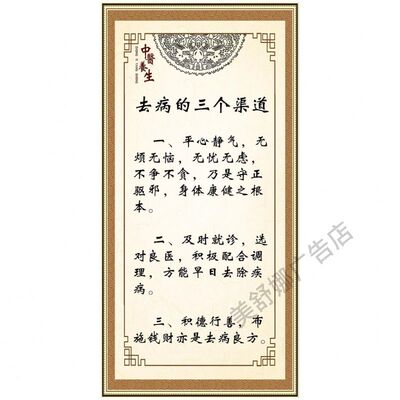 中醫養生
去病的三个渠道
一、平心静气，无
烦无恼，无忧无虑，
不争不贪，乃是守正
驱邪，身体康健之根
本。
二、及时就诊，选
对良医，积极配合调
理，方能早日去除疾
病。
三、积德行善，布
施钱财亦是去病良方。
美舒娜广告店